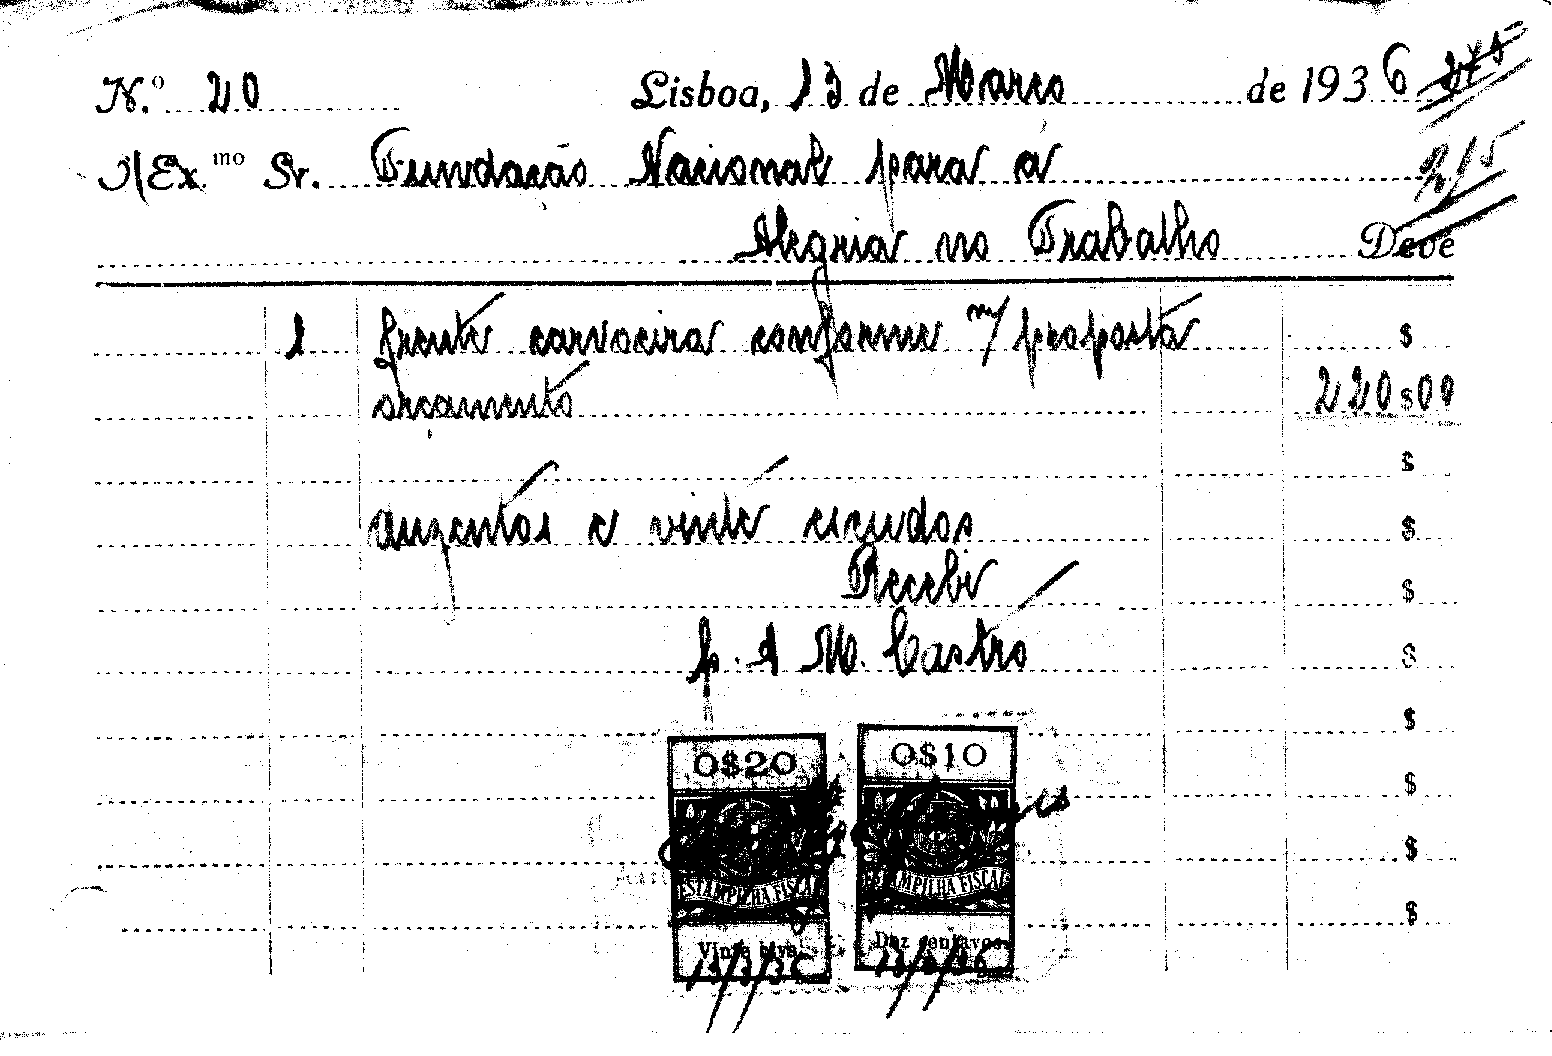 N.º 20 Lisboa, 13 de Março de 1936
I/Ex.mo Sr. Fundação Nacional para a
Alegria no Trabalho Deve
215
1 frente carvoeira conforme m/ proposta $
orçamento 220$00
$
duzentos e vinte escudos $
Recebi $
p. A M. Castro $
$
0$20 0$10
$
$
ESTAMPILHA FISCAL ESTAMPILHA FISCAL
$
Vinte Dez centavos
13/3/36 13/3/36